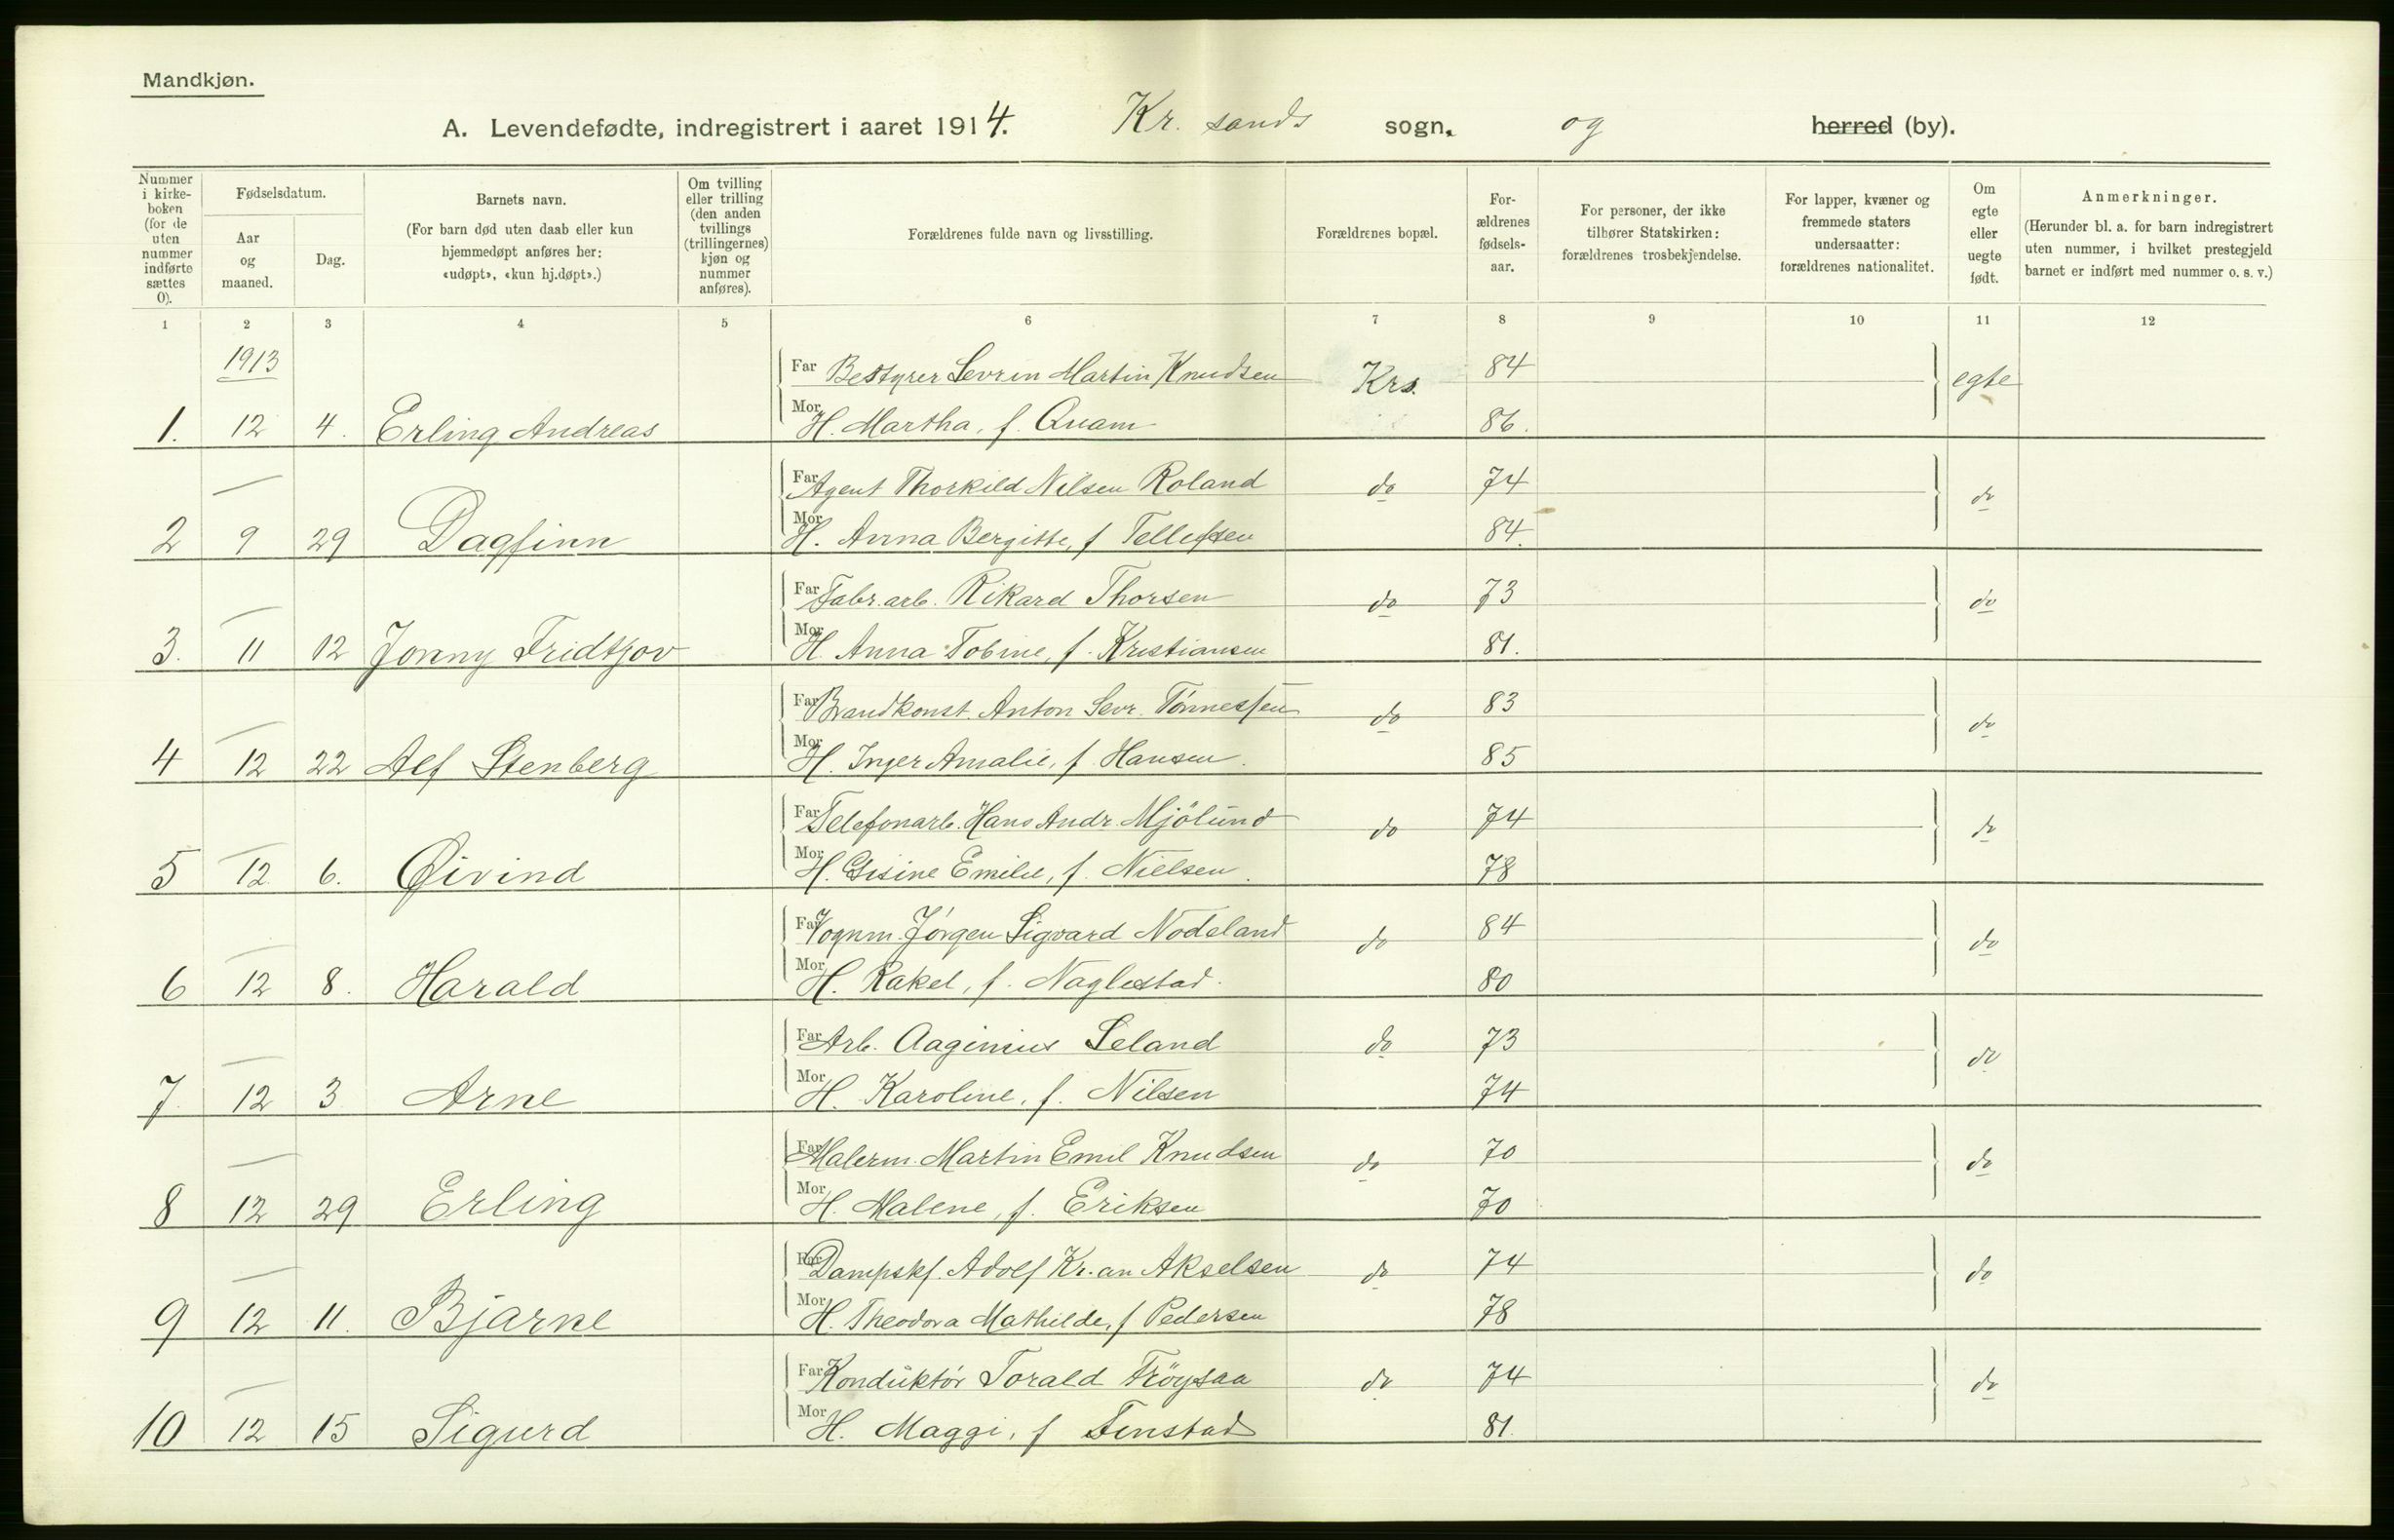 Mandkjøn.
A. Levendefødte, indregistrert i aaret 1914. Kr. sands sogn, og herred (by).
Nummer i kirke-boken (for de uten nummer indførte sættes 0).
Fødselsdatum.
Aar og maaned.
Dag.
Barnets navn.
(For barn død uten daab eller kun hjemmedøpt anføres her: «udøpt», «kun hj.døpt».)
Om tvilling eller trilling (den anden tvillings (trillingernes) kjøn og nummer anføres).
Forældrenes fulde navn og livsstilling.
Forældrenes bopæl.
For-ældrenes fødsels-aar.
For personer, der ikke tilhører Statskirken: forældrenes trosbekjendelse.
For lapper, kvæner og fremmede staters undersaatter: forældrenes nationalitet.
Om egte eller uegte født.
Anmerkninger.
(Herunder bl. a. for barn indregistrert uten nummer, i hvilket prestegjeld barnet er indført med nummer o. s. v.)
1 2 3 4 5 6 7 8 9 10 11 12
1913 Far Bestyrer Sevrin Martin Knudsen Krs. 84 egte
1. 12 4. Erling Andreas Mor H. Martha, f. Quam 86.
— Far Agent Thorkild Nilsen Roland do 74 do
2 9 29 Dagfinn Mor H. Anna Bergitte, f Tellefsen 84.
— Far Fabr.arb. Rikard Thorsen do 73 do
3. 11 12 Jonny Fridtjov Mor H. Anna Tobine, f. Kristiansen 81.
— Far Brandkonst. Anton Sevr. Tönnessen do 83 do
4 12 22 Alf Stenberg Mor H. Inger Amalie, f. Hansen. 85
— Far Telefonarb. Hans Andr. Mjölund do 74 do
5 12 6. Øivind Mor H. Gisine Emilie, f. Nielsen. 78
— Far Vognm. Jörgen Sigvard Nodeland do 84 do
6 12 8. Harald Mor H. Rakel, f. Naglestad. 80
— Far Arb. Aaginius Seland do 73 do
7. 12 3 Arne Mor H. Karoline, f. Nilsen 74
— Far Malerm. Martin Emil Knudsen do 70 do
8 12 29 Erling Mor H. Malene, f. Eriksen 70
— Far Dampskf. Adolf Kr.an Akselsen do 74 do
9 12 11. Bjarne Mor H. Theodora Mathilde, f Pedersen 78
— Far Konduktör Torald Fröysaa do 74 do
10 12 15 Sigurd Mor H. Maggi, f Finstad 81.